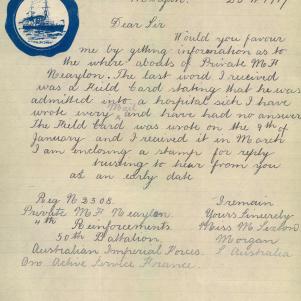 Morgan
Dear Sir
Would you favour
me by getting information as to
the where abouts of Private M H
The last word I received
was a Field Card stating that he was
admitted into a hospital sick I have
wrote every Mail and have had no answer
The Field Card was wrote on the 9th of
January and I recived it in March
I am enclosing a stamp for reply
trusting to hear from you
as an early date
I remain
Reg N 2308 Yours Sincerely
Private M H Miss M
4th Reinforcements Morgan
50th Battalion S Australia
Australian Imperial Forces
On Active Service France